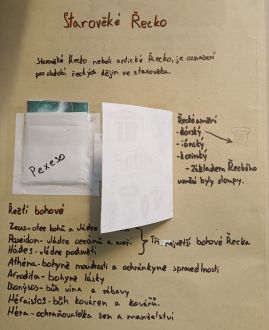 Starověké Řecko
Starověké Řecko neboli antické Řecko, je označení
pro období řeckých dějin ve starověku.
Pexeso
Řecké umění
- dórský
- iónský
- korinský
- Základem Řeckého
umění byly sloupy.
Řečtí bohové
Zeus - otec bohů a vládce
Poseidon - vládce oceánů a moří
Hádes - vládce podsvětí
Tři největší bohové Řecka
Athéna - bohyně moudrosti a ochránkyně spravedlnosti
Afrodita - bohyně lásky
Dionýsos - bůh vína a zábavy
Héfaistos - bůh kováren a kovářů.
Héra - ochraňovatelka žen a manželství